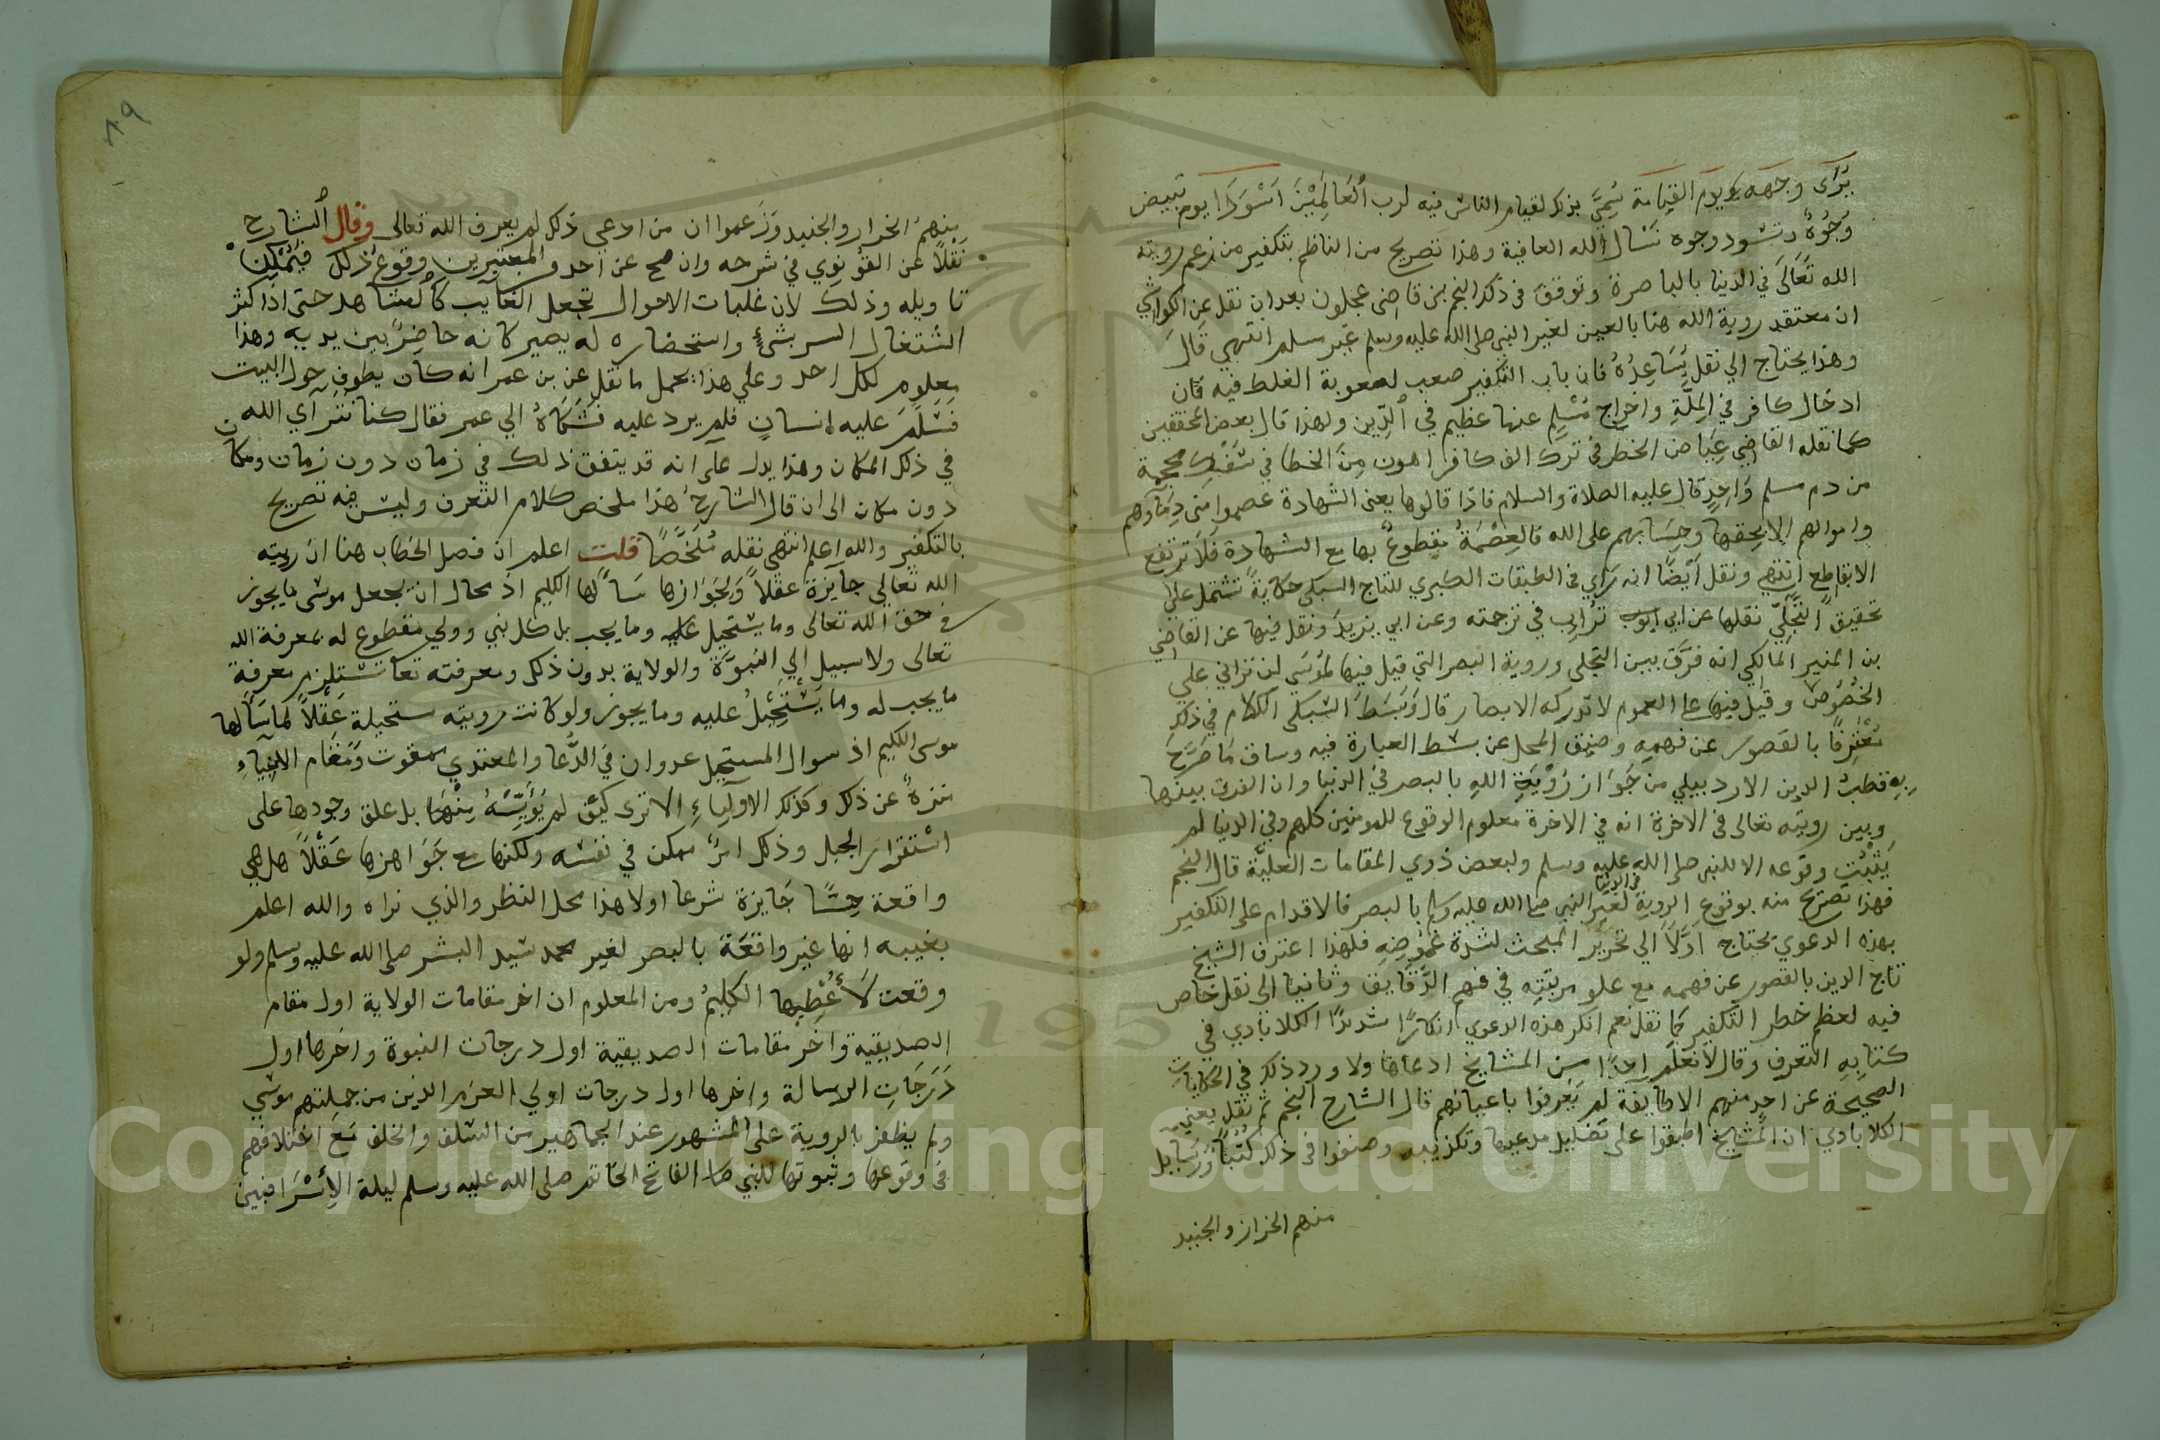 يُرَى وجهه يوم القيامة سُمِّيَ بذكر لقيام الناس فيه لرب العالمين اسْوَدَّا يوم تبيض
وُجُوهٌ وتسود وجوه نَسْأل الله العافية وهذا تصريح من الناظم بتكفير من زعم رويته
الله تَعَالَى في الدنيا بالباصرة وتوقف في ذكر النجم بن قاضى عجلون بعد ان نقل عن الكواشي
ان معتقد روية الله هنا بالعين لغير النبي صلى الله عليه وسلم غير سلم انتهي قال
وهذا يحتاج الي نقل يُسَاعِدُهُ فان باب التكفير صعب لصعوبة الغلط فيه فان
ادخال كافر في المِلَّةِ واخراج مُسْلِم عنها عظيم في الدِّين ولهذا قال بعض المحققين
كما نقله القاضي عِيَاض الخطر في ترك الف كافر اهون مِنَ الخطا في سَفْكِ محجمة
من دم مسلم وَاحِدٍ قال عليه الصلاة والسلام فاذا قالوها يعنى الشهادة عصموا منى دِمَاوهم
واموالهم الا بحقها وحِسَابهم على الله فالعِصْمَةُ مقطوعٌ بها مع الشهادة فَلَا ترتفع
الا بقاطع انتهي ونقل ايضًا انه رَاي في الطبقات الكبري للتاج السبكي حكايةً تشتمل علي
تحقيق التَّجَلِّي نقلها عن ابي ايوب تُرَاب في ترجمته وعن ابي يزيد ونقل فيها عن القاضي
بن المنير المالكي انه فرَّق بين التجلى وروية البصر التي قيل فيها لمُوسَى لن تراني علي
الخُصُوص وقيل فيها على العموم لا تدركه الابصار قال وَبَسَطَ السُّبكى الكلام في ذلك
مُعْتَرِفًا بالقصور عن فهمه وضيق المحل عن بسط العبارة فيه وساق مَا صَرَّح
بِهِ قطبُ الدين الاردبيلي من جَوَاز رُؤْيَةِ اللهِ بالبصر في الدنيا وان الفرق بينها
وبين رويته تعالى فى الاخرة انه في الاخرة معلوم الوقوع للمومنين كلهم وفي الدنيا لم
يَثْبُت وقوعه الا للنبى صلى الله عليه وسلم ولبعض ذوي المقامات العلية قال النجم
فهذا تصريح منه بوقوع الروية في الدنيا لغير النبي صلى الله عليه وسلم بالبصر فالاقدام على التكفير
بهذه الدعوي يحتاج اوَّلًا الي تحرير المبحث لشدة غُمُوضِهِ فلهذا اعترف الشيخ
تاج الدين بالقصور عن فهمه مع علو مرتبَتِه في فهم الدَّقَايق وثانيا الى نقل خاص
فيه لعظم خطر التكفير كما نقل نعم انكر هذه الدعوي انكارًا شديدًا الكلاباذي في
كتابِهِ التعرف وقال لا نعلم احدًا من المشايخ ادعاها ولا ورد ذلك في الحكايات
الصحيحة عن احد منهم الا طايفة لم يَعْرفوا باعيانهم قال الشارح النجم ثم نقل يعنى
الكلاباذي ان المشايخ اطبقوا على تضليل مدعيها وتكذيبه وصنفوا فى ذلك كُتُبًا وَرَسَايل
منهم الخراز والجنيد
٨٩
منهم الخراز والجنيد وزَعموا ان من ادعى ذلك لم يعرف الله تعالى وقال الشارح
نقلًا عن القُونَوِي في شرحه وان صح عن احد من المعتبرين وقوع ذلك فيُمْكِن
تاويله وذلك لان غلبات الاحوال تجعل الغايب كالمشاهد حتى اذا كثر
اشتغال السر بشئٍ واستحضاره له يصير كانه حاضرًا بين يديه وهذا
معلوم لكل احد وعلي هذا يحمل ما نقل عن بن عمر انه كان يطوف حول البيت
فسَلَّمَ عليه انسان فلم يرد عليه فَشَكَاهُ الي عمر فقال كنا نَتَرَآي الله
في ذلك المكان وهذا يدل على انه قد يتفق ذلك في زمان دون زمان ومكان
دون مكان الى ان قال الشارح هذا ملخص كلام التعرف وليس فيه تصريح
بالتكفير والله اعلم انتهى نقله مُلَخَّصًا قلت اعلم ان فصل الخطاب هنا ان رويته
الله تعالي جَايزة عقلًا وَلِجَوَازها سَالها الكليم اذ محال ان يجعل موسى ما يجوز
في حق الله تعالى وما يستحيل عليه وما يجب بل كل نبي وولي مقطوع له بمعرفة الله
تعالى ولا سبيل إلي النبوَّة والولاية بدون ذلك ومعرفته تعا تستلزم معرفة
ما يجب له وما يَسْتَحِيلُ عليه وما يجوز ولو كانت رويته مستحيلة عَقْلاً لما سَألها
موسى الكليم اذ سوال المستحيل عدوان في الدُّعا والمعتدي ممقوت ومَقام الانبياءِ
منزهٌ عن ذلك وكذلك الاولياءِ الا ترى كيف لم يُؤَيِّسْهُ مِنْها بل علق وجودها على
اسْتقرار الجبل وذلك امرٌ ممكن في نفسه ولكنها مع جَوَازها عَقْلاً هل هي
واقعة حِسًّا جَايزة شرعا اولا هذا محل النظر والذي نراه والله اعلم
بغيبه انها غير واقعَة بالبصر لغير محمد سَيد البشر صلى الله عليه وسلم ولو
وقعت لَأُعْطِيها الكليمُ ومن المعلوم ان اخر مقامات الولاية اول مقام
الصديقية واخر مقامات الصديقية اول درجات النبوة واخرها اول
دَرَجَاتِ الرسالة واخرها اول درجات اولي العزم الذين من جملتهم موسَي
ولم يظفر بالروية على المشهور عند الجماهير من السَّلف والخلف مع اختلافهم
في وقوعها وثبوتها للنبي الفاتح الخاتم صلى الله عليه وسلم ليلة الأَسْرَا فبين
Copyright © King Saud University
195